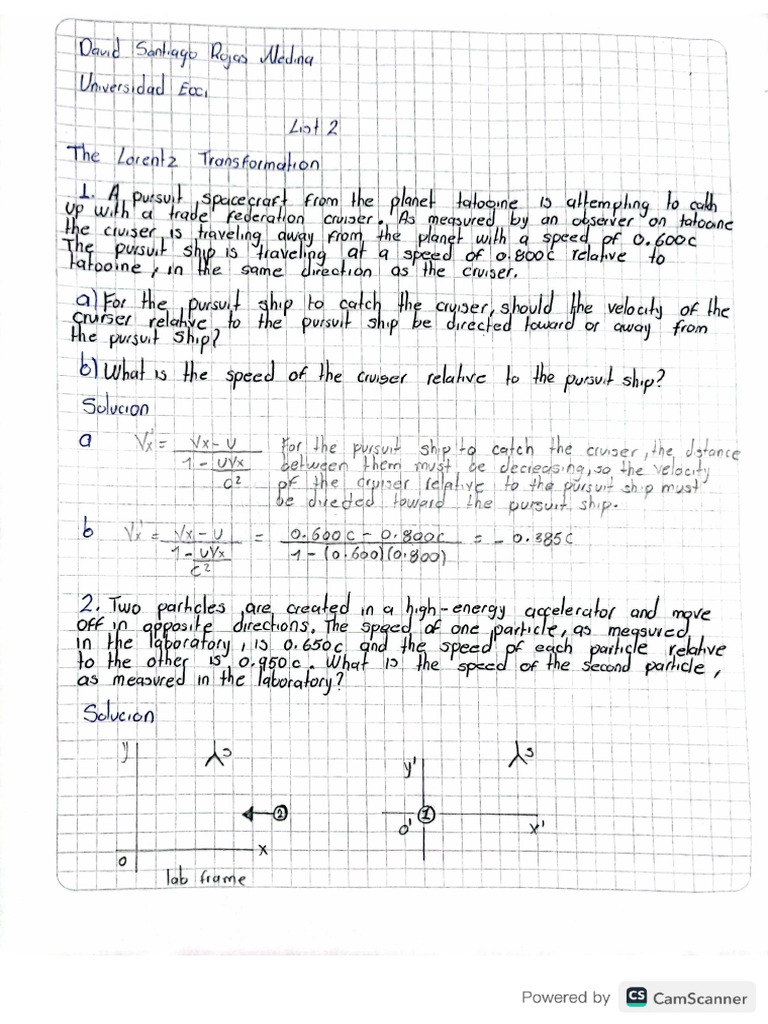 David Santiago Rojas Medina
Universidad Ecci
List 2
The Lorentz Transformation
1. A pursuit spacecraft from the planet tatooine is attempting to catch
up with a trade federation cruiser. As measured by an observer on tatooine
the cruiser is traveling away from the planet with a speed of 0.600c
The pursuit ship is traveling at a speed of 0.800c relative to
tatooine, in the same direction as the cruiser.
a) For the pursuit ship to catch the cruiser, should the velocity of the
cruiser relative to the pursuit ship be directed toward or away from
the pursuit ship?
b) What is the speed of the cruiser relative to the pursuit ship?
Solucion
a Vx' = (Vx - U) / (1 - UVx/c²) For the pursuit ship to catch the cruiser, the distance
between them must be decreasing, so the velocity
of the cruiser relative to the pursuit ship must
be directed toward the pursuit ship.
b Vx' = (Vx - U) / (1 - UVx/c²) = (0.600c - 0.800c) / (1 - (0.600)(0.800)) = - 0.385c
2. Two particles are created in a high-energy accelerator and move
off in opposite directions. The speed of one particle, as measured
in the laboratory, is 0.650c and the speed of each particle relative
to the other is 0.950c. What is the speed of the second particle,
as measured in the laboratory?
Solucion
y y'
2 1
O' x'
x
O
lab frame
Powered by CS CamScanner